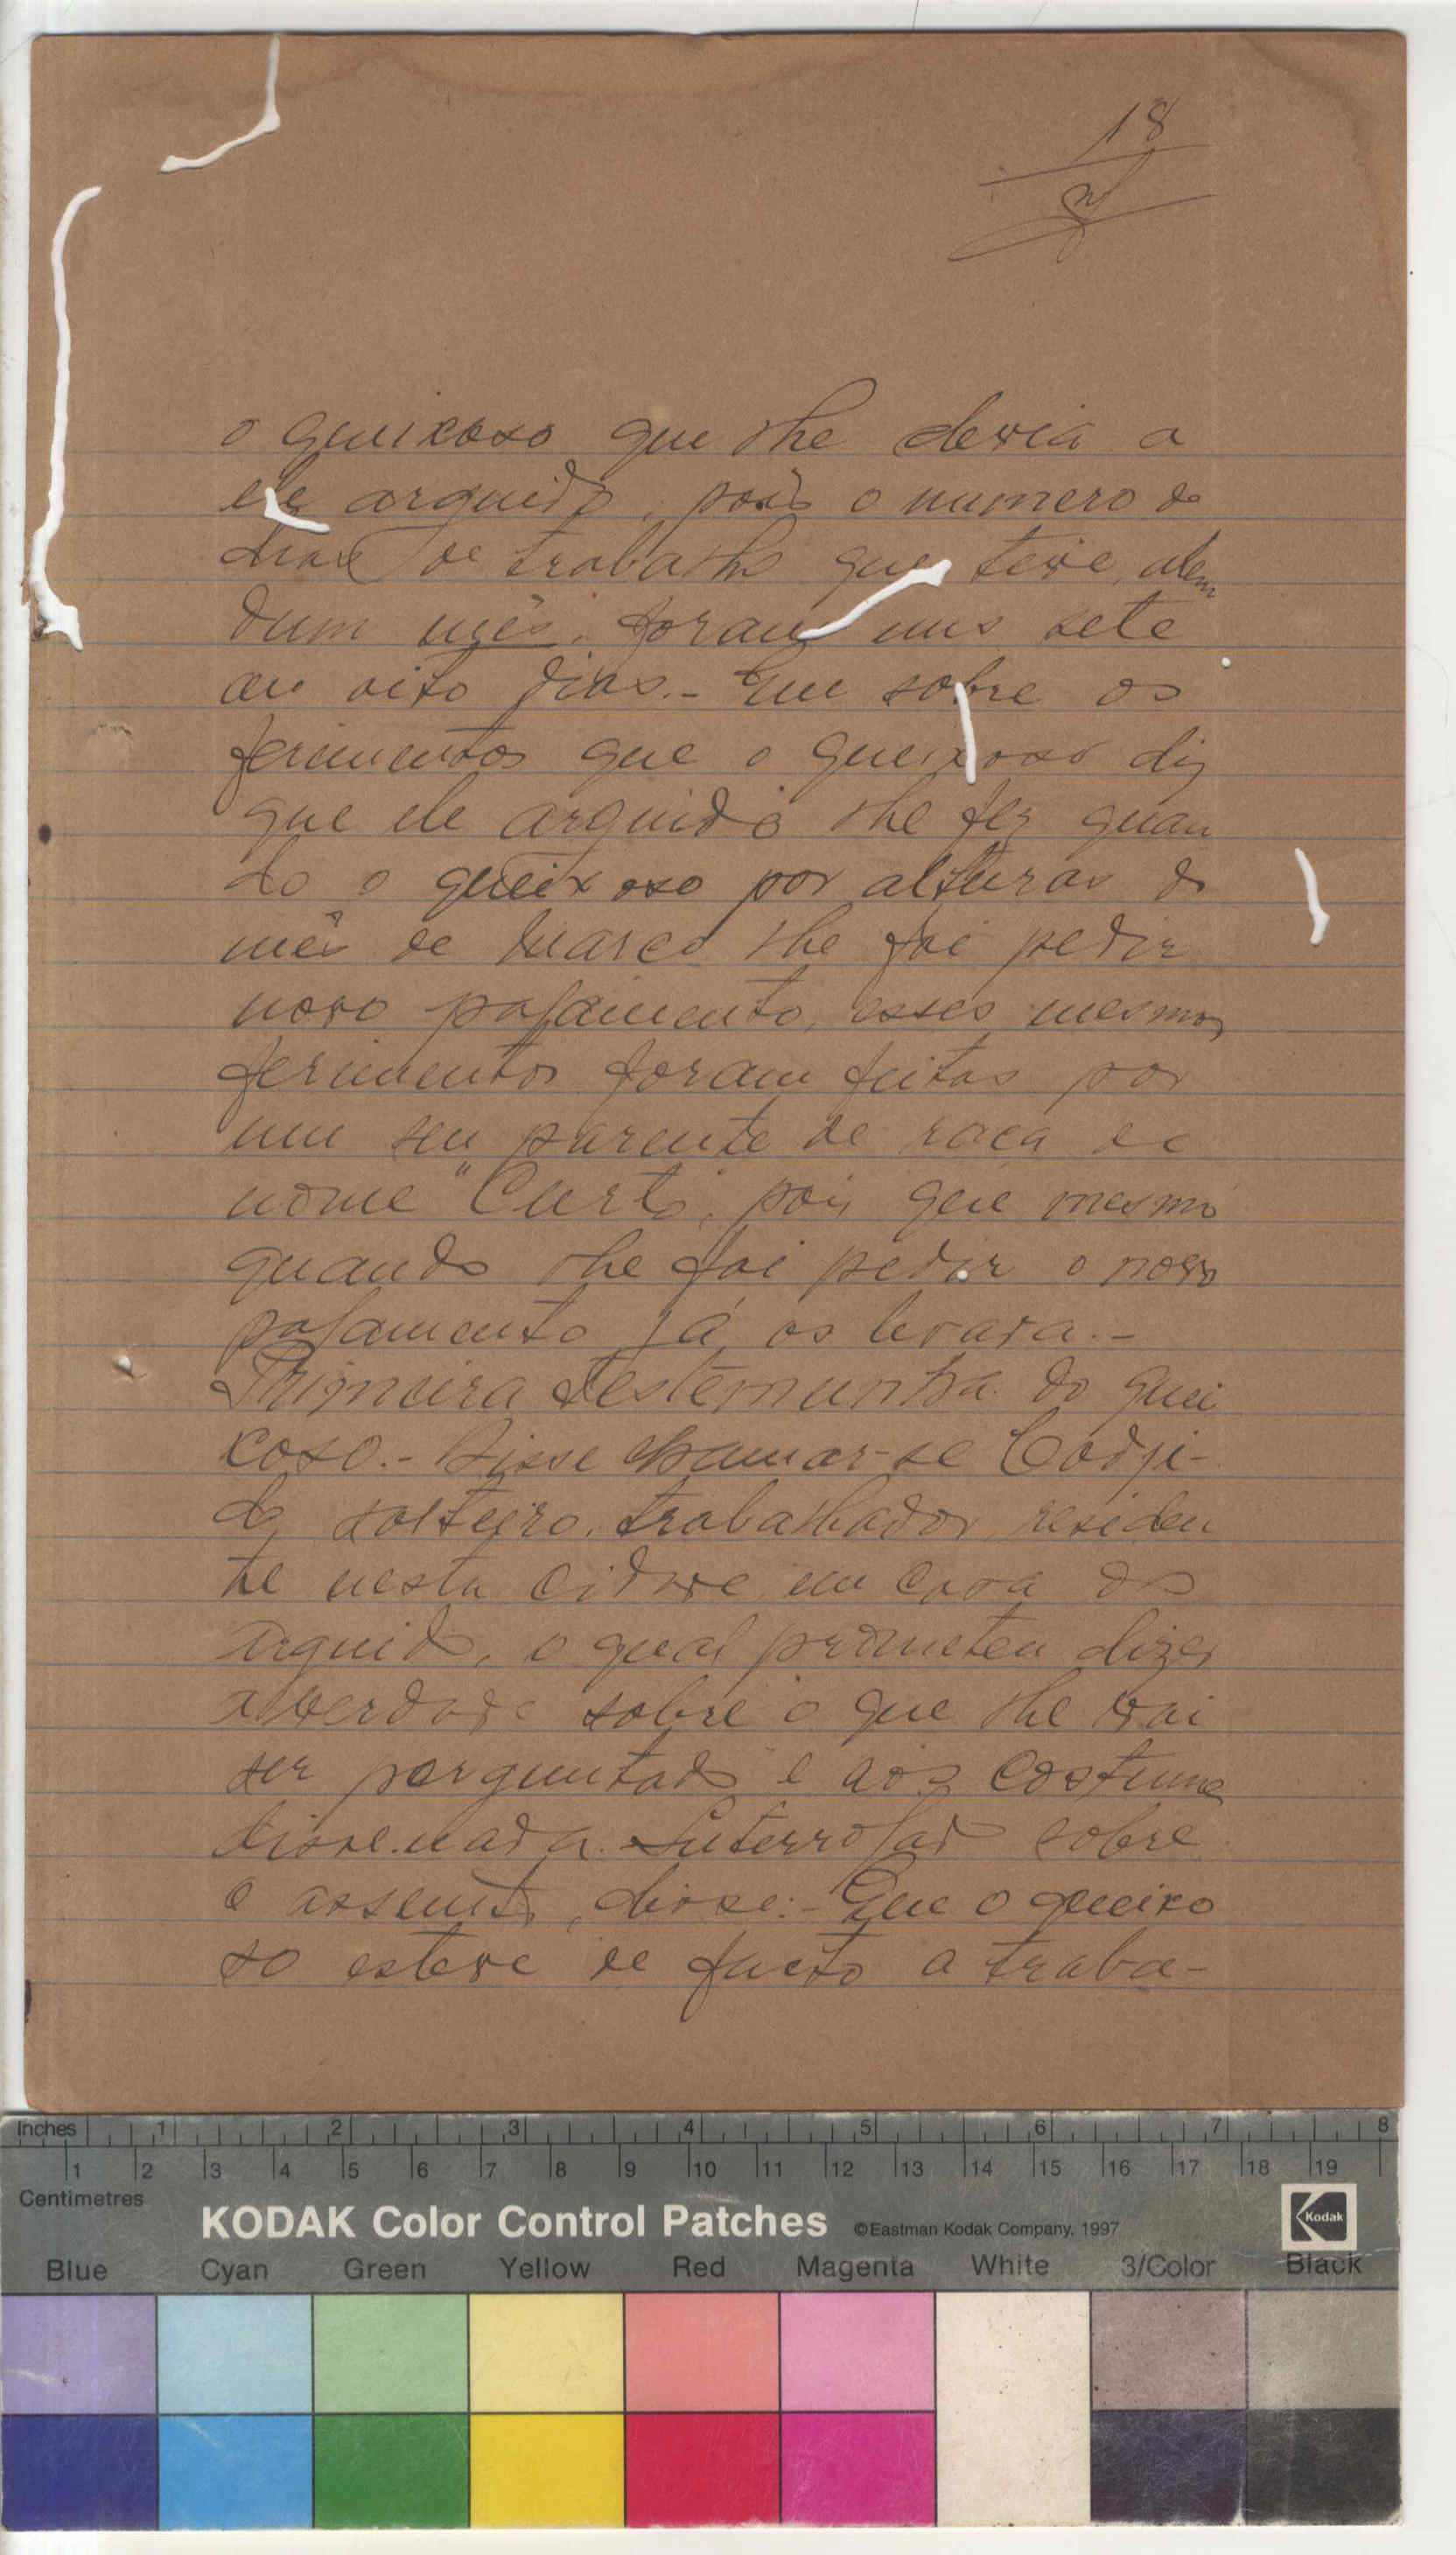 18
o queixoso que lhe devia a
ele arguido, pois o numero de
dias de trabalho que teve, alem
dum mês, foram uns sete
ou oito dias.- Que sobre os
ferimentos que o queixoso diz
que ele arguido lhe fez quan
do o queixoso por alturas do
mês de Março lhe foi pedir
novo pagamento, esses mesmos
ferimentos foram feitos por
um seu parente de raça de
nome "Curto", pois que mesmo
quando lhe foi pedir o novo
pagamento já os levava.-
Primeira testemunha do quei
xoso.- Disse chamar-se
solteiro, trabalhador, residen
te nesta cidade em casa do
arguido, o qual prometeu dizer
a verdade sobre o que lhe vai
ser perguntado e aos costumes
disse nada. Interrogado sobre
o assunto, disse:- Que o queixo
so esteve de facto a traba-
Inches 1 2 3 4 5 6 7 8
1 2 3 4 5 6 7 8 9 10 11 12 13 14 15 16 17 18 19
Centimetres
KODAK Color Control Patches ©Eastman Kodak Company, 1997 Kodak
Blue Cyan Green Yellow Red Magenta White 3/Color Black